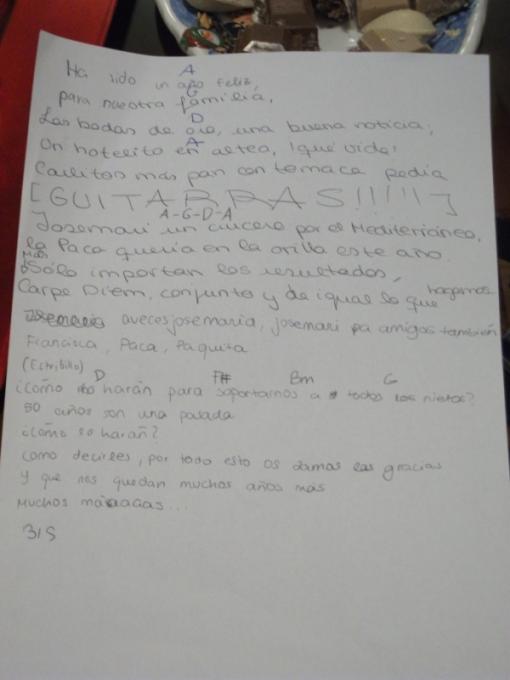 A
Ha sido un año feliz,
G
para nuestra familia,
D
Las bodas de oro, una buena noticia,
A
Un hotelito en altea, ¡qué vida!
Carlitos más pan con tomaca pedía
[GUITARRAS!!!!!]
A-G-D-A
Josemari un crucero por el Mediterráneo,
la Paca quería en la orilla este año
Más
Sólo importan los resultados,
Carpe Diem, conjunto y da igual lo que hagamos
aveces josemaria, josemari pa amigos también
Francisca, Paca, Paquita
(Estribillo) D F# Bm G
¿Cómo harán para soportarnos a todos los nietos?
50 años son una pasada
¿Cómo lo harán?
Como decirles, por todo esto os damos las gracias
Y que nos quedan muchos años más
Muchos máaaaas...